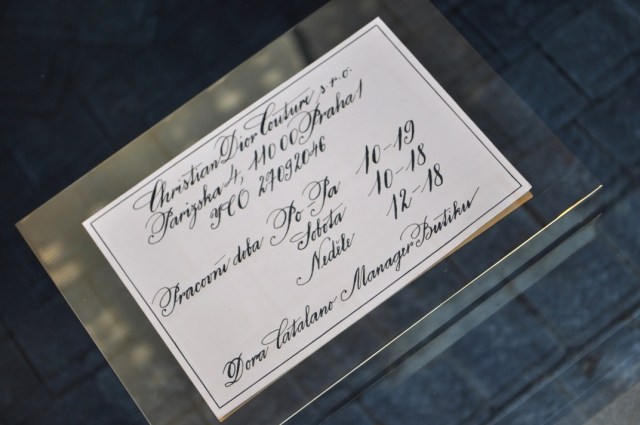 Christian Dior Couture s.r.o.
Pařížská 4, 110 00 Praha 1
IČO 27092046
Pracovní doba Po-Pa 10-19
Sobota 10-18
Neděle 12-18
Dora Catalano Manager Butiku